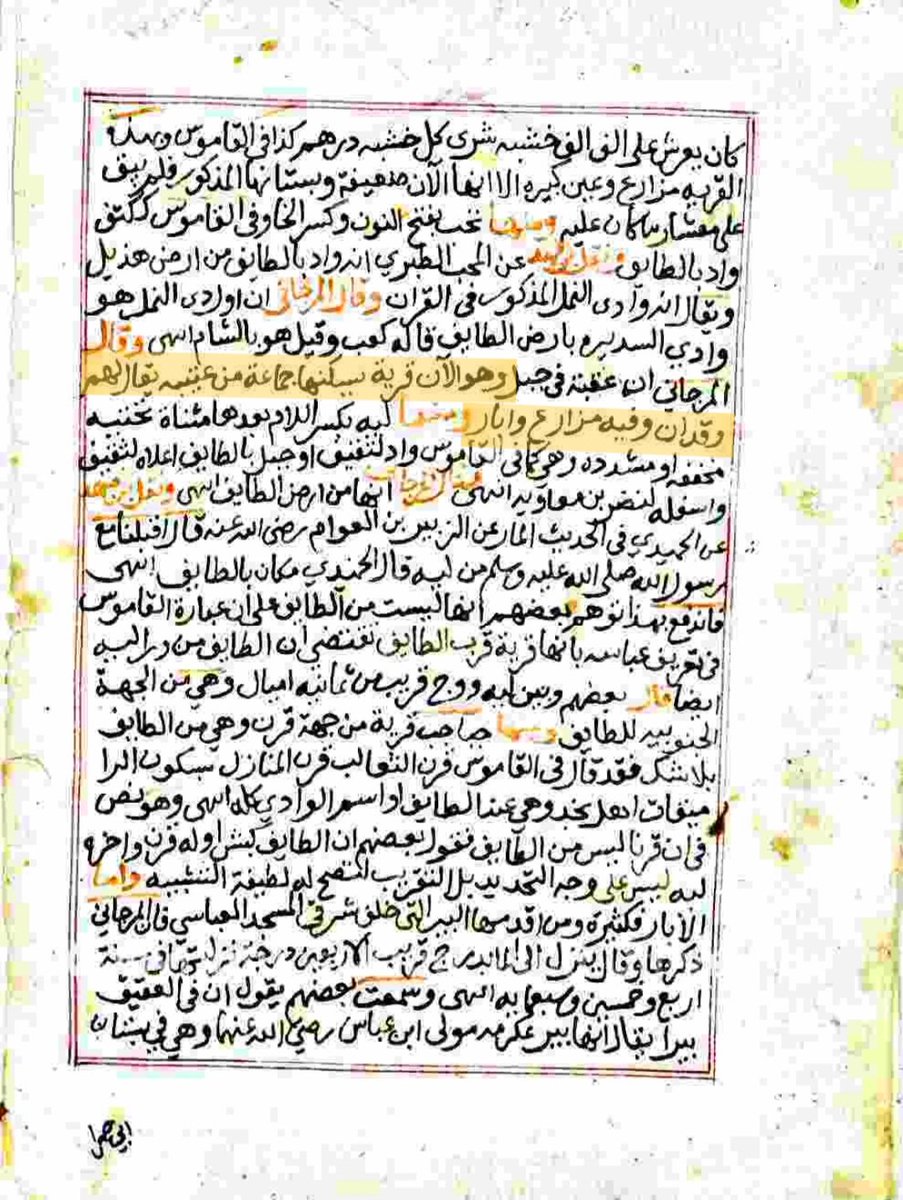 كان يعرش على الف الف خشبه شرى كل خشبه درهم كذا في القاموس وبهذه
القريه مزارع وعين كبيره الا انها الآن ضعيفة وبستانها المذكور فلم يبق
على معشار ما كان عليه ومنها نخب بفتح النون وكسر الخا وفي القاموس ككتف
واد بالطايف ونقل بن فهد عن المحب الطبري انه واد بالطايف من ارض هذيل
ويقال انه وادى النمل المذكور في القران وقال المرجاني ان وادى النمل هو
وادي السديره بارض الطايف قاله كعب وقيل هو بالشام انتهى وقال
المرجاني ان عقبة في جبل وهو الآن قرية يسكنها جماعة من عتيبه يقال لهم
وقدان وفيه مزارع وابار ومنها ليه بكسر اللام بعدها مثناة تحتيه
مخففه او مشدده وهي كما في القاموس واد لثقيف او جبل بالطايف اعلاه لثقيف
واسفله لنضر بن معاويه انتهى انها من ارض الطايف انتهى ونقل بن فهد
عن الحميدي في الحديث المار عن الزبير بن العوام رضى الله عنه قال اقبلنا مع
رسول الله صلى الله عليه وسلم من ليه قال الحميدي مكان بالطايف انتهى
فاندفع بهذا توهم بعضهم انها ليست من الطايف على ان عبارة القاموس
في تعريف عباسه بانها قرية قرب الطايف تقتضي ان الطايف من ورا ليه
ايضا قال بعضهم وبين ليه ووج قريب من ثمانيه اميال وهي من الجهة
الجنوبيه للطايف ومنها قرية من جهة قرن وهي من الطايف
بلا شك فقد قال في القاموس قرن الثعالب قرن المنازل بسكون الرا
ميقات اهل نجد وهي عند الطايف او اسم الوادي كله انتهى وهو نص
في ان قرنا ليس من الطايف فقول بعضهم ان الطايف كبش اوله قرن واخره
ليه ليس على وجه التحديد بل التقريب لتصح له لطيفة التشبيه واما
الابار فكثيرة ومن اقدمها البير التى خلف شرقي المسجد العباسي قال المرجاني
ذكرها وقال ينزل الى الما بدرج قريب الاربعين درجة نزلتها في سنة
اربع وخمسين وسبعمايه انتهى وسمعت بعضهم يقول ان في العقيق
بيرا يقال انها بير عكرمه مولى ابن عباس رضي الله عنهما وهي في بستان